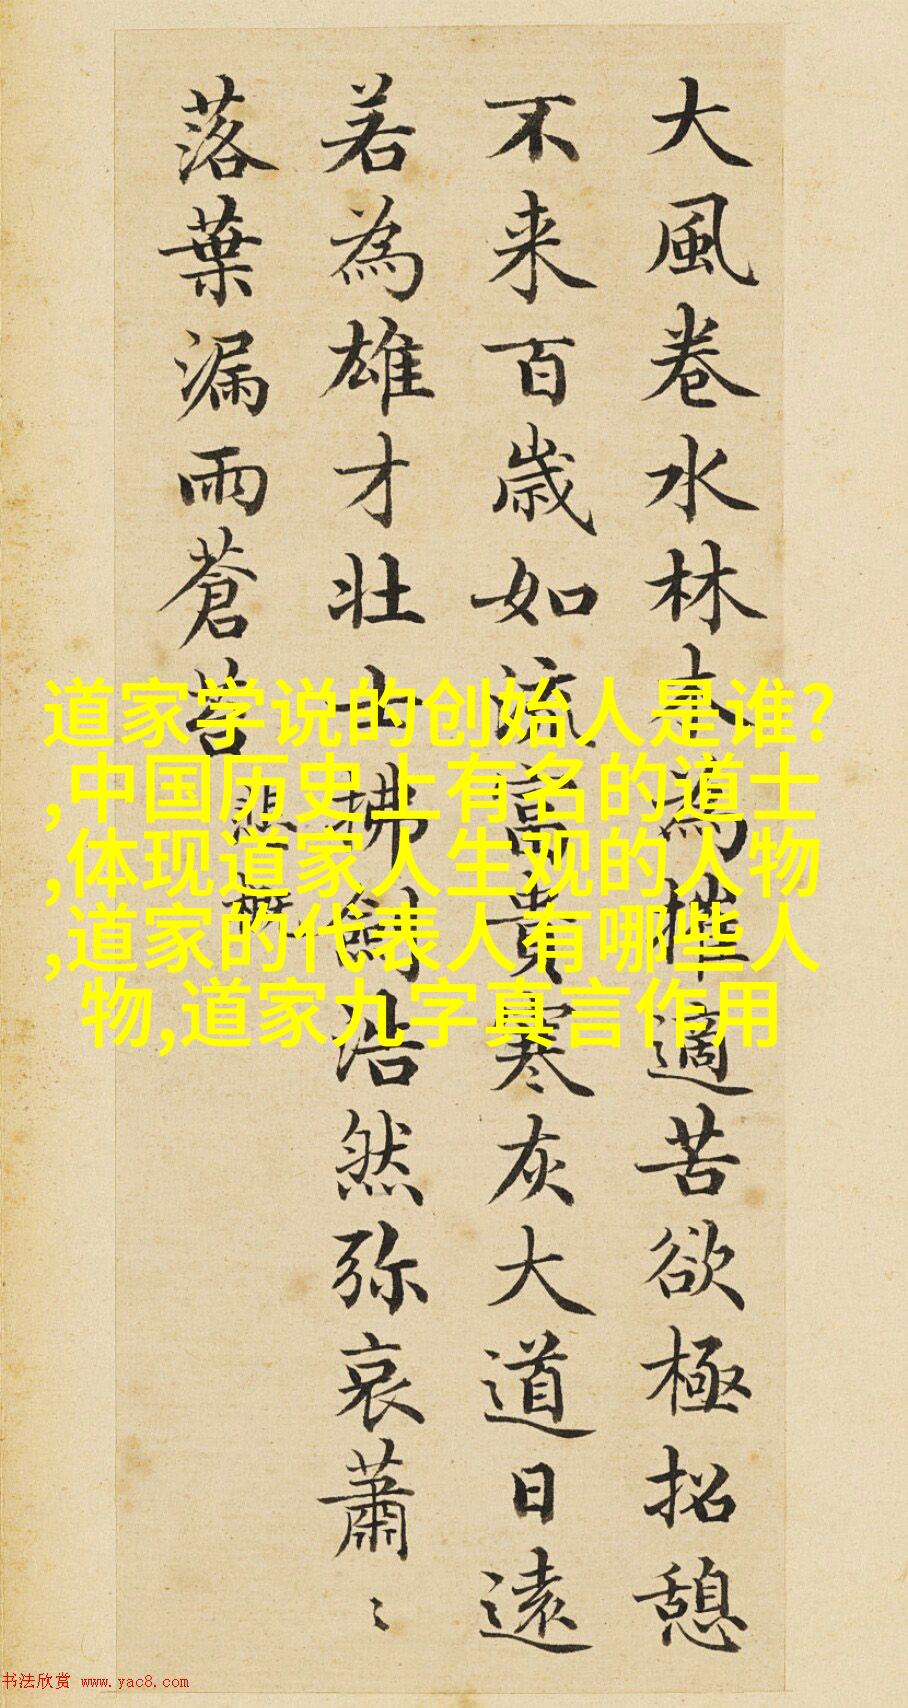 大風卷水林木為摧適苦欲極招憩
不来百嵗如流富貴寒灰大道日遠
若為雄才壮士拂劍浩然弥哀蕭〻
落葉漏雨蒼苔
悲慨
道家学说的创始人是谁?
,中国历史上有名的道士
,体现道家人生观的人物
,道家的代表人有哪些人
物,道家九字真言作用
书法欣赏 www.yac8.com